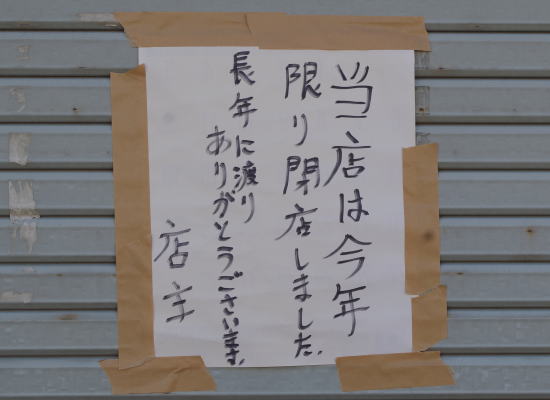 当店は今年
限り閉店しました.
長年に渡り
ありがとうございます.
店主